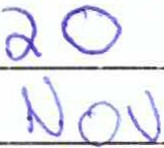 20
NOV